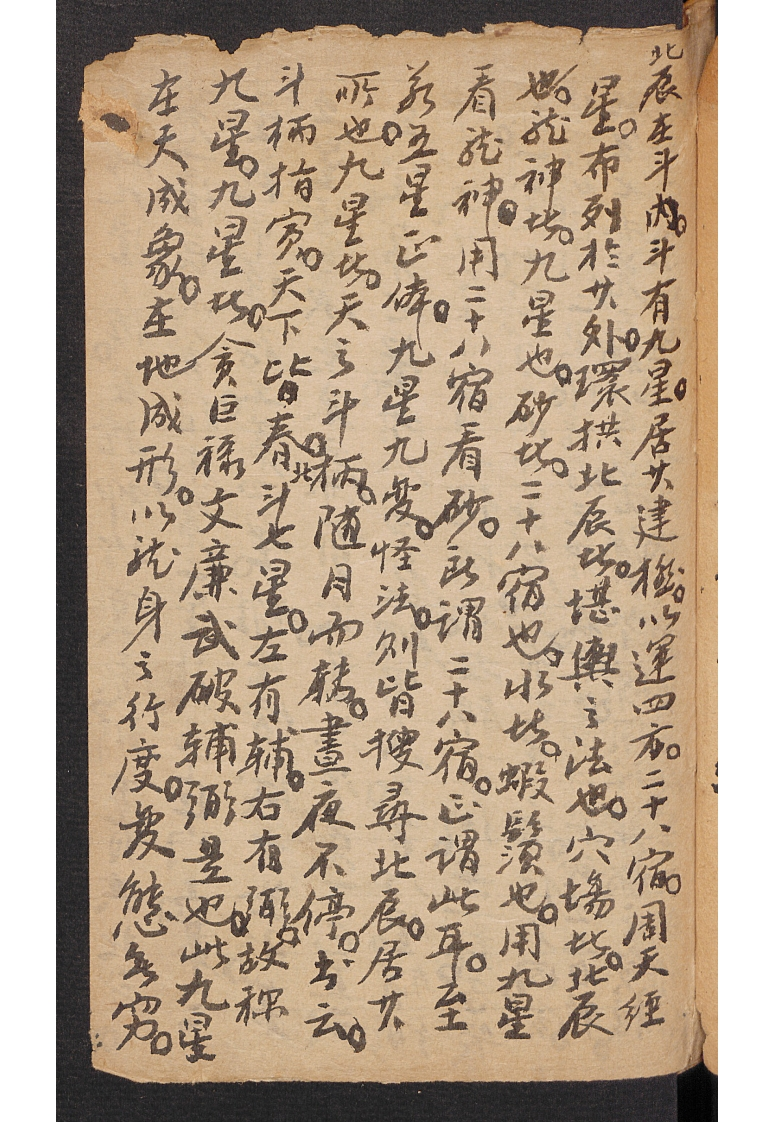 北辰在斗内。斗有九星。居其建極。以運四方。二十八宿。周天經
星。布列於其外。環拱北辰者。堪輿之法也。穴場者。北辰
也。龍神者。九星也。砂者。二十八宿也。水者。蝦鬚也。用九星
看龍神。用二十八宿看砂。所謂二十八宿。正謂此耳。至
若五星正体。九星九變。怪法。則皆搜尋北辰。居其
所也。九星者。天之斗柄。随月而轉。晝夜不停。書云。
斗柄指寅。天下皆春。北斗七星。左有輔。右有弼。故称
九星。九星者。貪巨禄文廉武破輔弼是也。此九星
在天成象。在地成形。以龍身之行度。變態無窮。